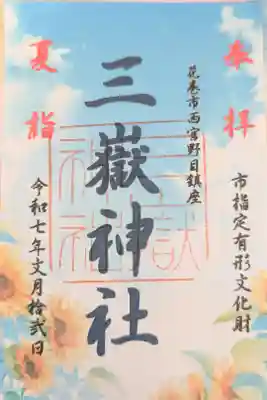 奉拝
花巻市西宮野目鎮座
市指定有形文化財
三嶽神社
三嶽神社
夏詣
令和七年文月拾弐日